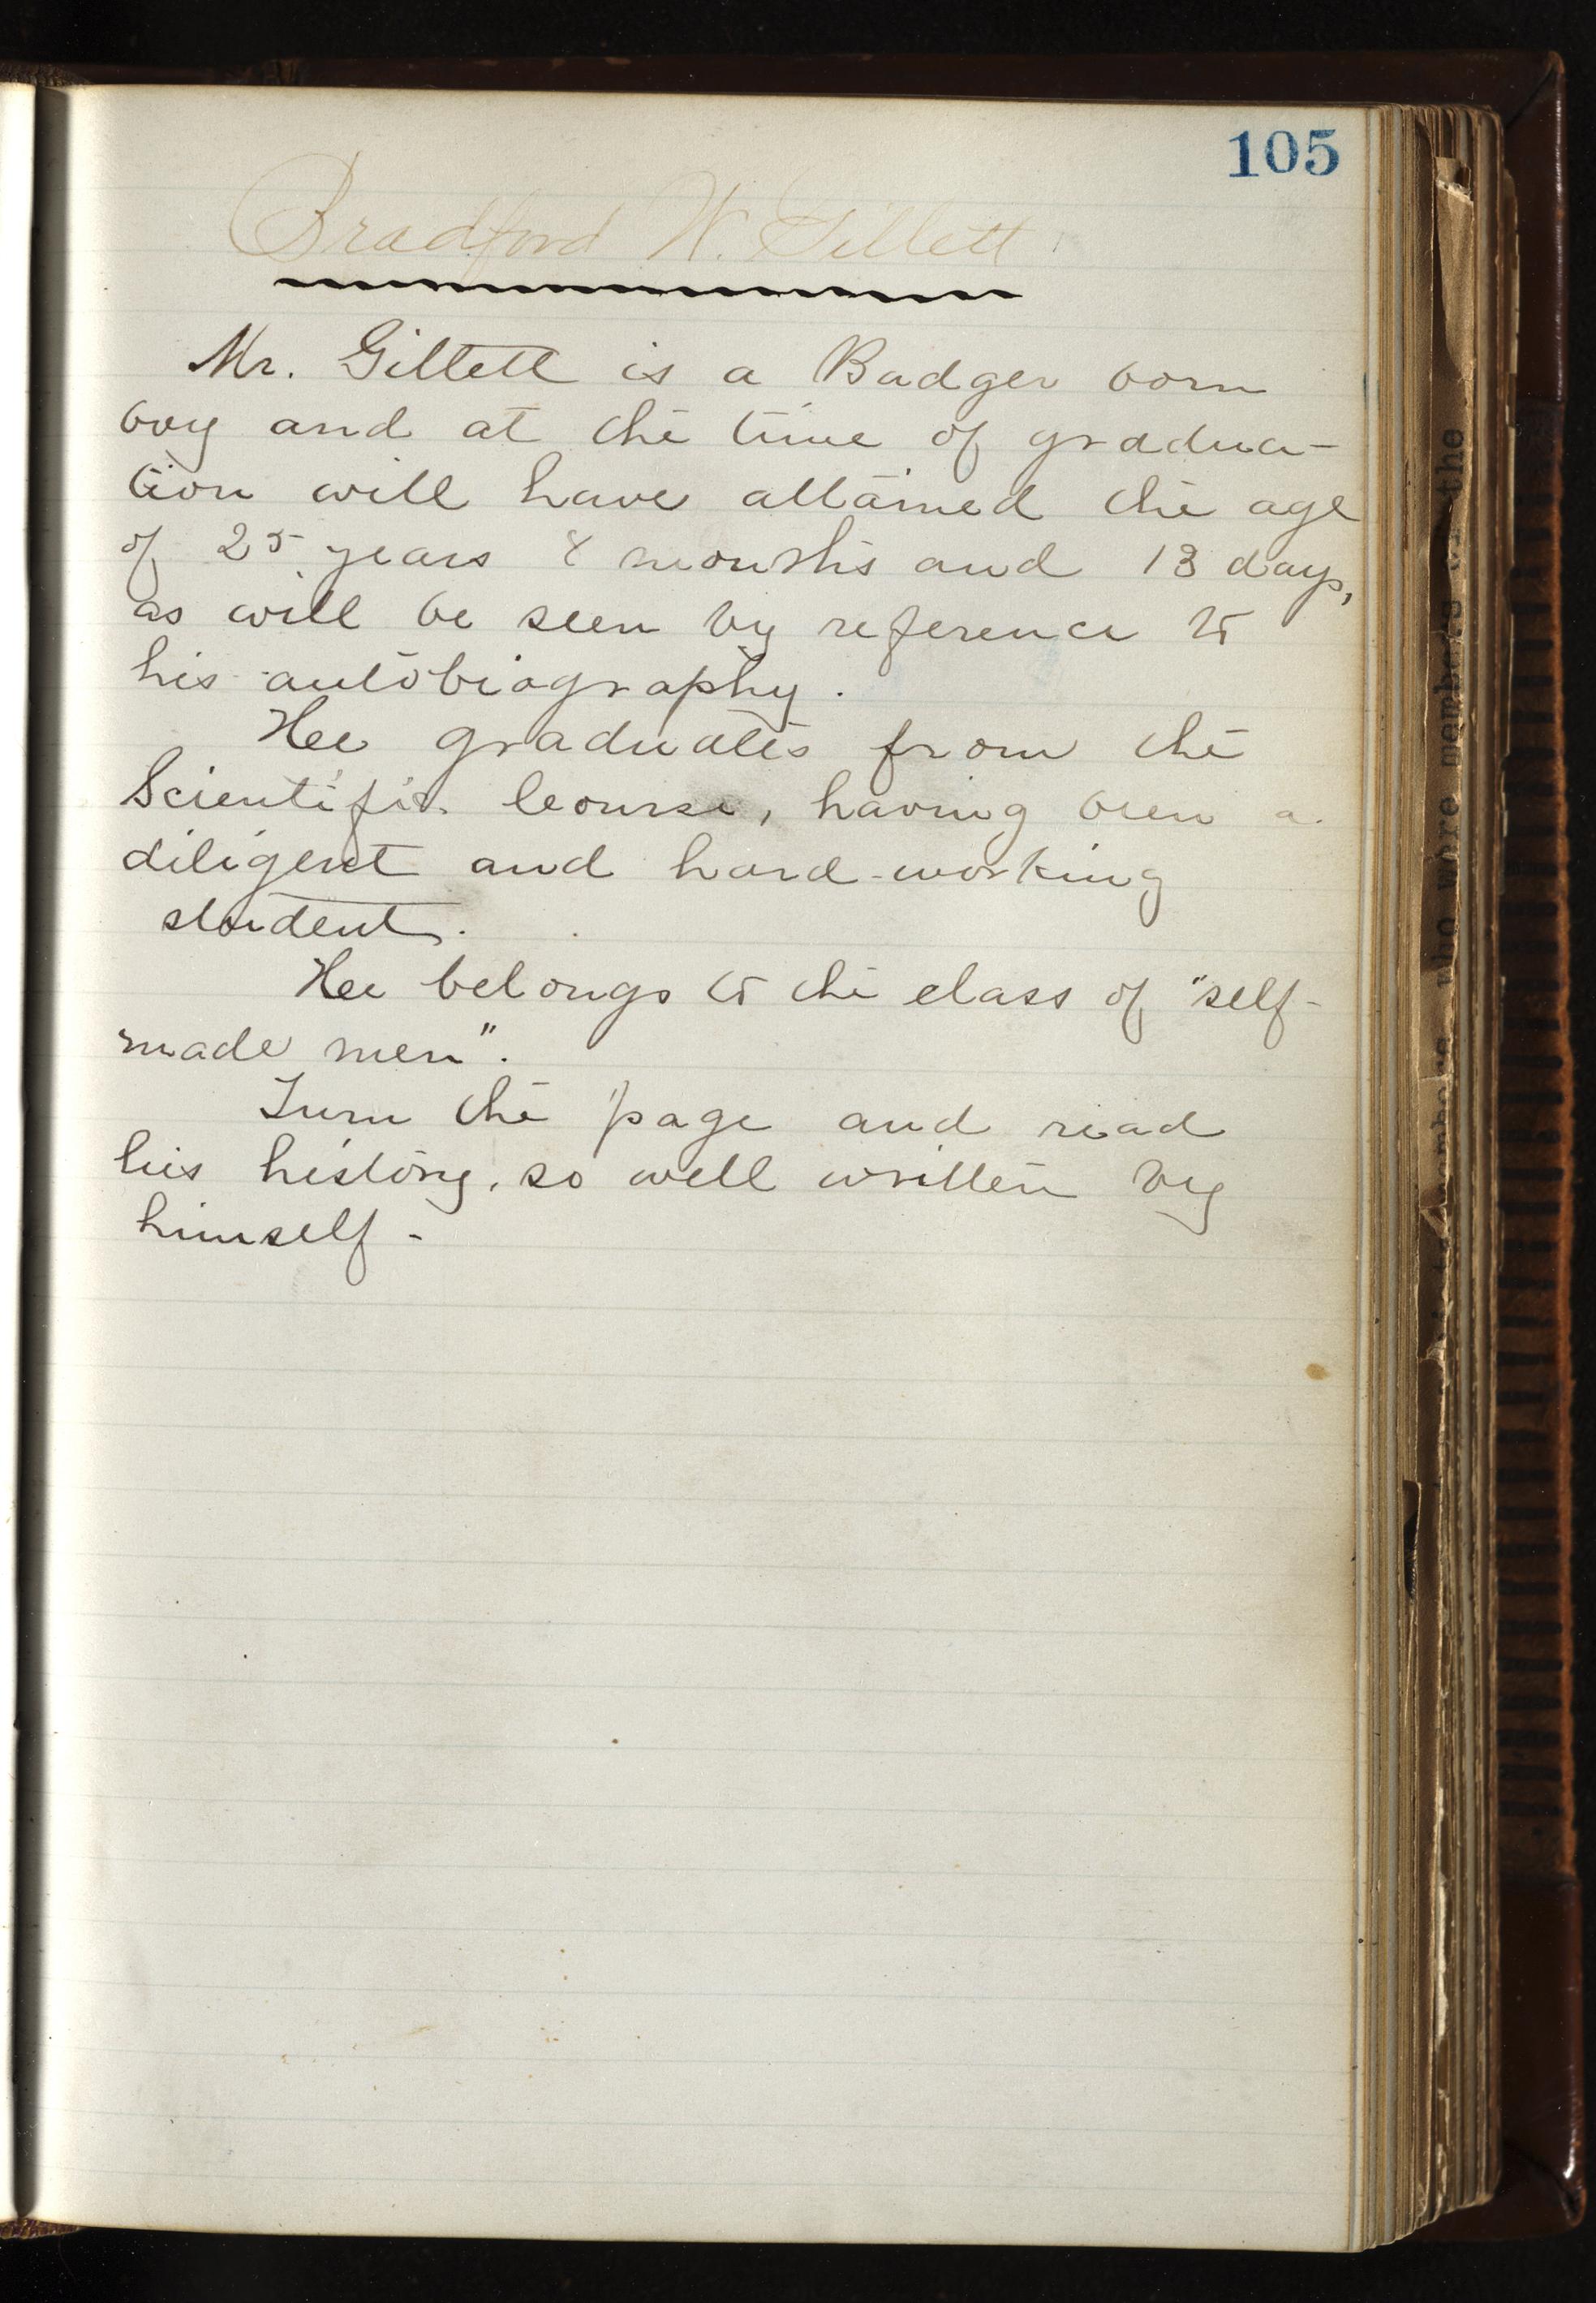 105
Bradford W. Gillett
Mr. Gillett is a Badger born
boy and at the time of gradua-
tion will have attained the age
of 25 years 8 months and 13 days,
as will be seen by reference to
his autobiography.
He graduates from the
Scientific Course, having been a
diligent and hard-working
student.
He belongs to the class of "self-
made men".
Turn the page and read
his history, so well written by
himself -
who were members the